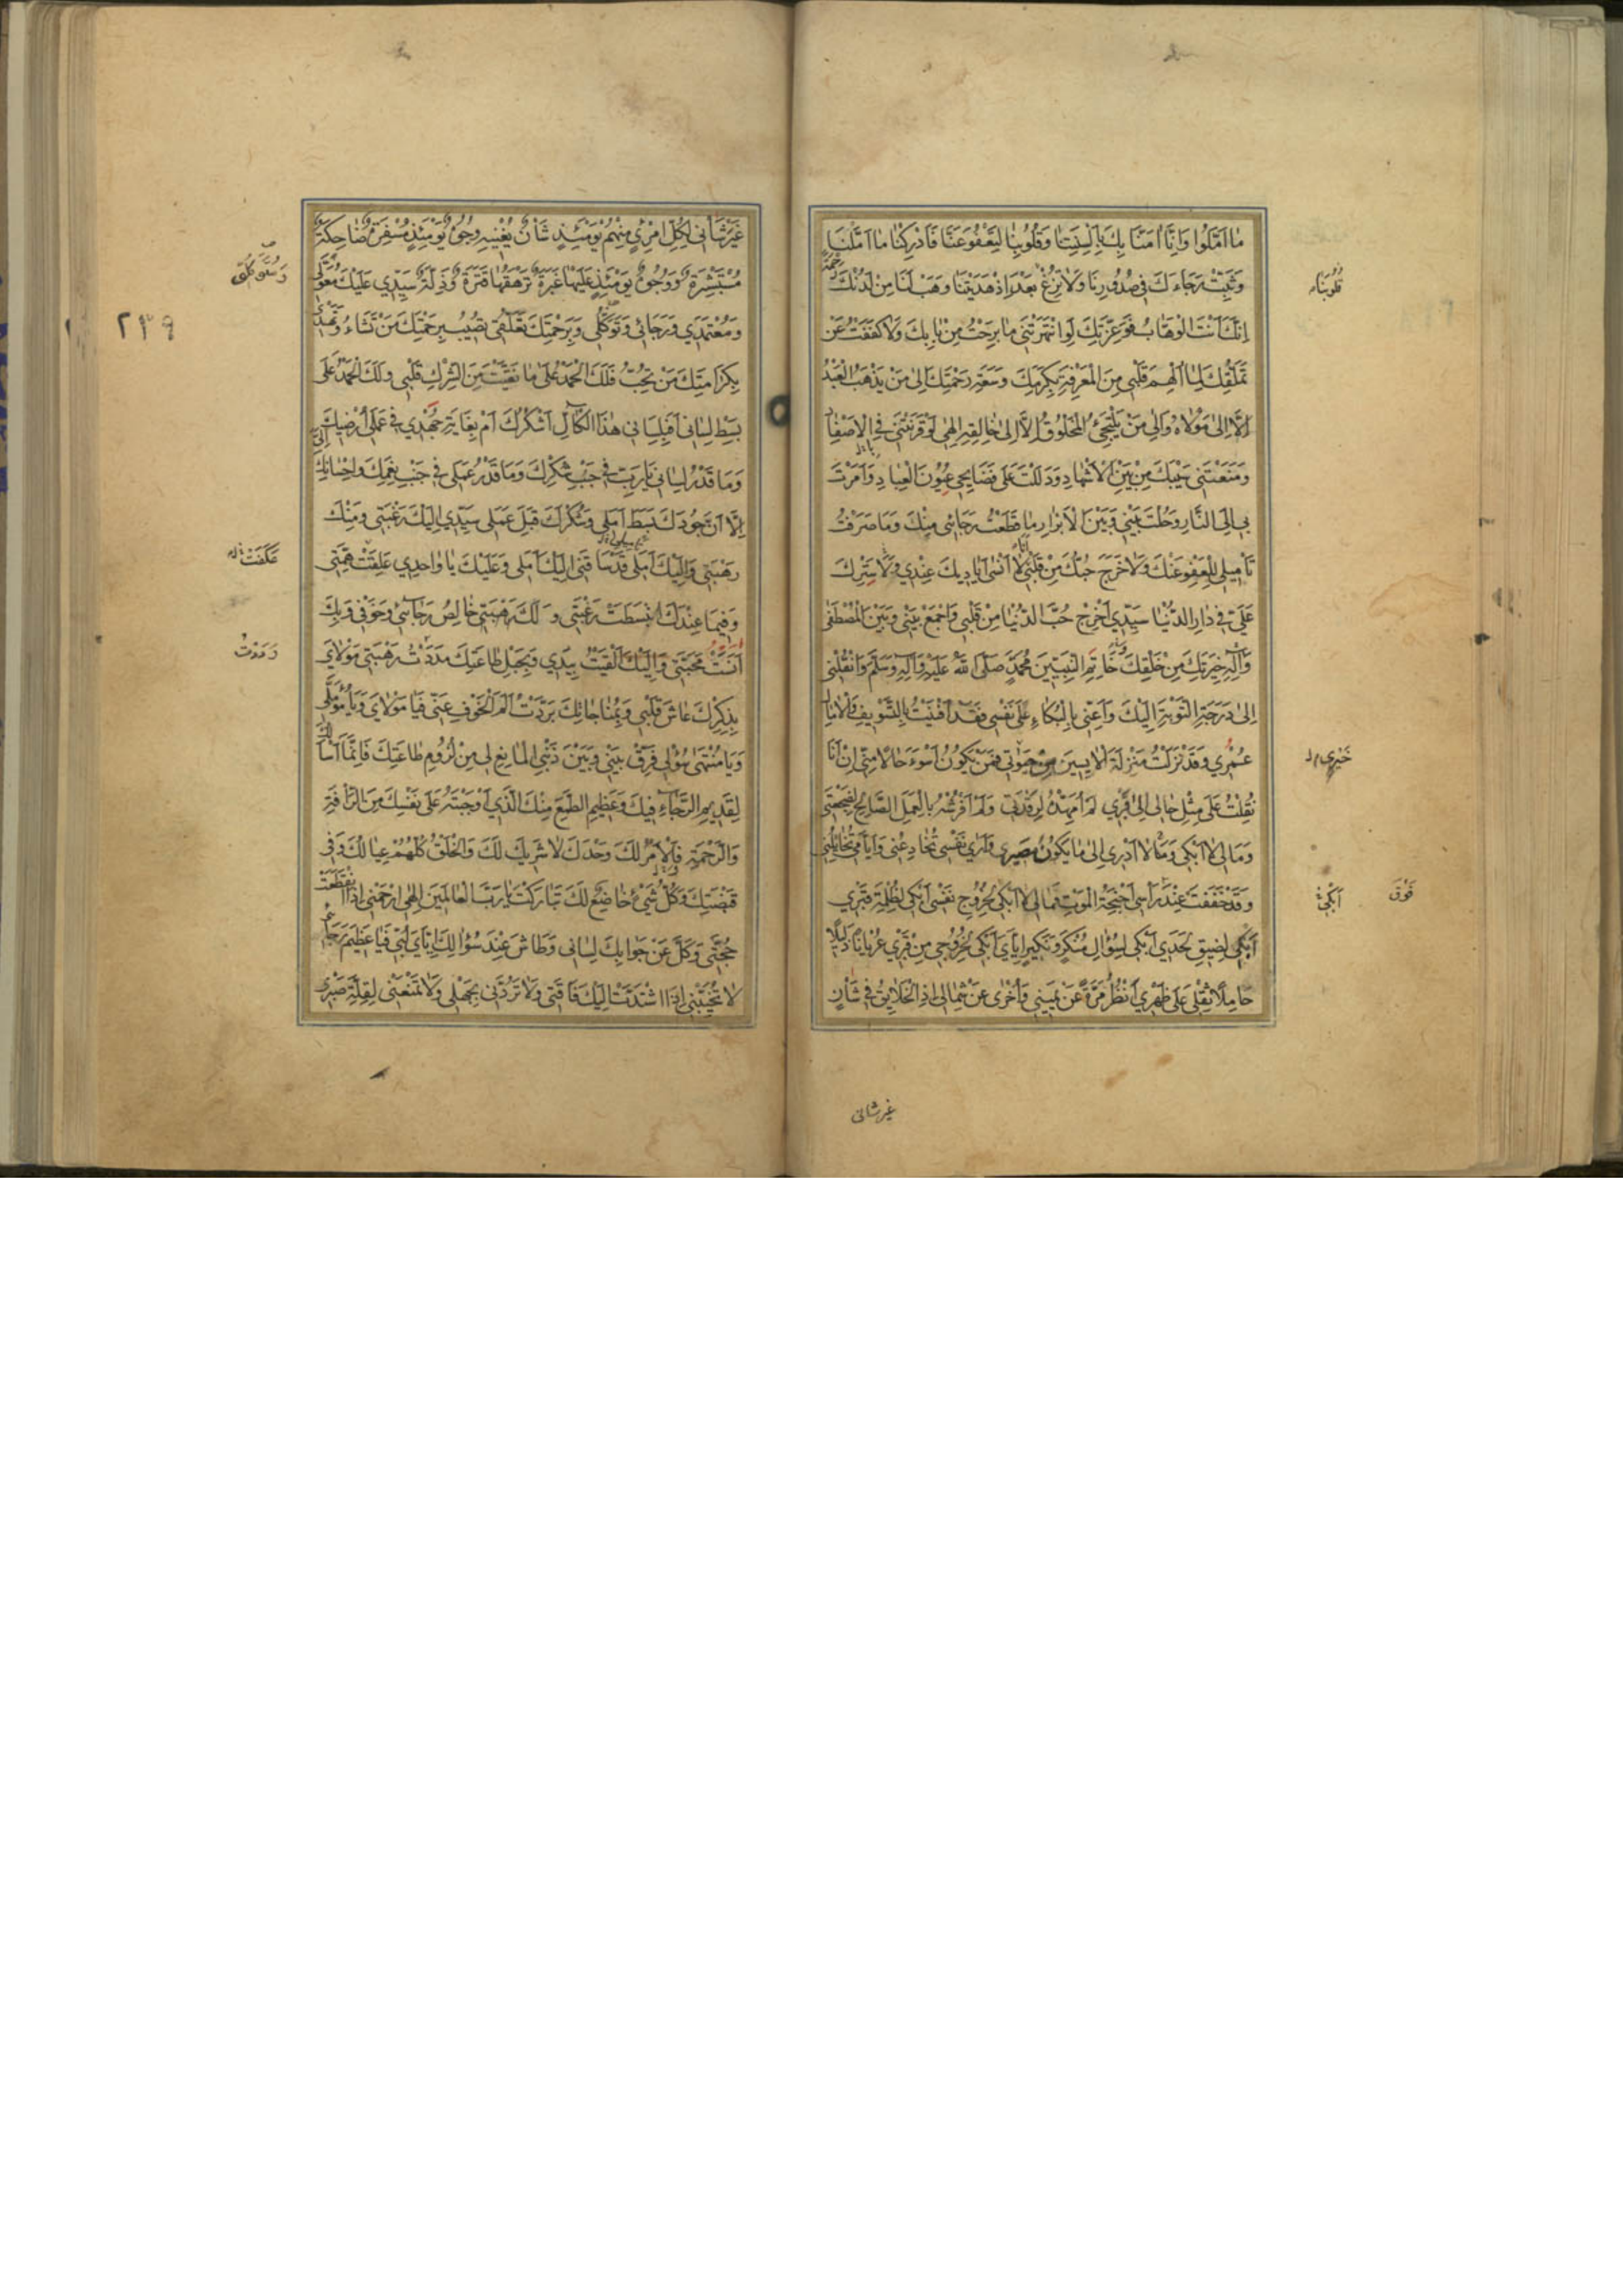 مَا اَمَّلُوا وَاِنَّا اٰمَنَّا بِكَ بِاَلْسِنَتِنَا وَقُلُوبِنَا لِتَعْفُوَ عَنَّا فَاَدْرِكْنَا مَا اَمَّلْنَا
وَثَبِّتْ رَجَاءَكَ فِى صُدُورِنَا وَلَا تُزِغْ قُلُوبَنَا بَعْدَ اِذْ هَدَيْتَنَا وَهَبْ لَنَا مِنْ لَدُنْكَ رَحْمَةً
اِنَّكَ اَنْتَ الْوَهَّابُ فَوَعِزَّتِكَ لَوِ انْتَهَرْتَنِى مَا بَرِحْتُ مِنْ بَابِكَ وَلَا كَفَفْتُ عَنْ
تَمَلُّقِكَ لِمَا اُلْهِمَ قَلْبِى مِنَ الْمَعْرِفَةِ بِكَرَمِكَ وَسَعَةِ رَحْمَتِكَ اِلَىٰ مَنْ يَذْهَبُ الْعَبْدُ
اِلَّا اِلَىٰ مَوْلَاهُ وَاِلَىٰ مَنْ يَلْتَجِئُ الْمَخْلُوقُ اِلَّا اِلَىٰ خَالِقِهِ اِلٰهِى لَوْ قَرَنْتَنِى فِى الْاَصْفَادِ
وَمَنَعْتَنِى سَيْبَكَ مِنْ بَيْنِ الْاَشْهَادِ وَدَلَلْتَ عَلَىٰ فَضَايِحِى عُيُونَ الْعِبَادِ وَاَمَرْتَ
بِى اِلَى النَّارِ وَحُلْتَ بَيْنِى وَبَيْنَ الْاَبْرَارِ مَا قَطَعْتُ رَجَائِى مِنْكَ وَمَا صَرَفْتُ
تَأْمِيلِى لِلْعَفْوِ عَنْكَ وَلَا خَرَجَ حُبُّكَ مِنْ قَلْبِى اَنَا لَا اَنْسَىٰ اَيَادِيكَ عِنْدِى وَلَا سَتْرَكَ
عَلَىَّ فِى دَارِ الدُّنْيَا سَيِّدِى اَخْرِجْ حُبَّ الدُّنْيَا مِنْ قَلْبِى وَاجْمَعْ بَيْنِى وَبَيْنَ الْمُصْطَفَىٰ
وَاٰلِهِ خِيَرَتِكَ مِنْ خَلْقِكَ وَخَاتَمِ النَّبِيِّينَ مُحَمَّدٍ صَلَّى اللّٰهُ عَلَيْهِ وَاٰلِهِ وَسَلَّمَ وَانْقُلْنِى
اِلَىٰ دَرَجَةِ التَّوْبَةِ اِلَيْكَ وَاَعِنِّى بِالْبُكَاءِ عَلَىٰ نَفْسِى فَقَدْ اَفْنَيْتُ بِالتَّسْوِيفِ وَالْاٰمَالِ
عُمْرِى وَقَدْ نَزَلْتُ مَنْزِلَةَ الْاٰيِسِينَ مِنْ حَيٰوتِى فَمَنْ يَكُونُ اَسْوَءَ حَالًا مِنِّى اِنْ اَنَا
نُقِلْتُ عَلَىٰ مِثْلِ حَالِى اِلَىٰ قَبْرِى لَمْ اُمَهِّدْهُ لِرَقْدَتِى وَلَمْ اَفْرُشْهُ بِالْعَمَلِ الصَّالِحِ لِضَجْعَتِى
وَمَا لِى لَا اَبْكِى وَمَا لَا اَدْرِى اِلَىٰ مَا يَكُونُ مَصِيرِى وَاَرَىٰ نَفْسِى تُخَادِعُنِى وَاَيَّامِى تُخَاتِلُنِى
وَقَدْ خَفَقَتْ عِنْدَ رَأْسِى اَجْنِحَةُ الْمَوْتِ فَمَا لِى لَا اَبْكِى لِخُرُوجِ نَفْسِى اَبْكِى لِظُلْمَةِ قَبْرِى
اَبْكِى لِضِيقِ لَحَدِى اَبْكِى لِسُؤَالِ مُنْكَرٍ وَنَكِيرٍ اِيَّاىَ اَبْكِى لِخُرُوجِى مِنْ قَبْرِى عُرْيَانًا ذَلِيلًا
حَامِلًا ثِقْلِى عَلَىٰ ظَهْرِى اَنْظُرُ مَرَّةً عَنْ يَمِينِى وَاُخْرَىٰ عَنْ شِمَالِى اِذِ الْخَلَايِقُ فِى شَأْنٍ
قُلُوبَنَا
خَيْرِى
فَوْقَ
اَبْكِى
غير شانى
غَيْرِ شَأْنِى لِكُلِّ امْرِئٍ مِنْهُمْ يَوْمَئِذٍ شَأْنٌ يُغْنِيهِ وُجُوهٌ يَوْمَئِذٍ مُسْفِرَةٌ ضَاحِكَةٌ
مُسْتَبْشِرَةٌ وَوُجُوهٌ يَوْمَئِذٍ عَلَيْهَا غَبَرَةٌ تَرْهَقُهَا قَتَرَةٌ وَذِلَّةٌ سَيِّدِى عَلَيْكَ مُعَوَّلِى
وَمُعْتَمَدِى وَرَجَائِى وَتَوَكُّلِى وَبِرَحْمَتِكَ تَعَلُّقِى تُصِيبُ بِرَحْمَتِكَ مَنْ تَشَاءُ وَتَهْدِى
بِكَرَامَتِكَ مَنْ تُحِبُّ فَلَكَ الْحَمْدُ عَلَىٰ مَا نَقَّيْتَ مِنَ الشِّرْكِ قَلْبِى وَلَكَ الْحَمْدُ عَلَىٰ
بَسْطِ لِسَانِى اَفَبِلِسَانِى هٰذَا الْكَالِّ اَشْكُرُكَ اَمْ بِغَايَةِ جُهْدِى فِى عَمَلِى اُرْضِيكَ
وَمَا قَدْرُ لِسَانِى يَا رَبِّ فِى جَنْبِ شُكْرِكَ وَمَا قَدْرُ عَمَلِى فِى جَنْبِ نِعَمِكَ وَاِحْسَانِكَ اِلَىَّ
اِلَّا اَنَّ جُودَكَ بَسَطَ اَمَلِى وَشُكْرَكَ قَبِلَ عَمَلِى سَيِّدِى اِلَيْكَ رَغْبَتِى وَمِنْكَ
رَهْبَتِى وَاِلَيْكَ اَمَلِى قَدْ سَاقَنِى اِلَيْكَ اَمَلِى وَعَلَيْكَ يَا وَاحِدِى عَلِقَتْ هِمَّتِى
وَفِيمَا عِنْدَكَ انْبَسَطَتْ رَغْبَتِى وَلَكَ رَهْبَتِى خَالِصُ رَجَائِى وَخَوْفِى وَبِكَ
اَنِسَتْ مَحَبَّتِى وَاِلَيْكَ اَلْقَيْتُ بِيَدِى وَبِحَبْلِ طَاعَتِكَ مَدَدْتُ رَهْبَتِى مَوْلَاىَ
بِذِكْرِكَ عَاشَ قَلْبِى وَبِمُنَاجَاتِكَ بَرَّدْتُ اَلَمَ الْخَوْفِ عَنِّى فَيَا مَوْلَاىَ وَيَا مُؤَمَّلِى
وَيَا مُنْتَهَىٰ سُؤْلِى فَرِّقْ بَيْنِى وَبَيْنَ ذَنْبِى الْمَانِعِ لِى مِنْ لُزُومِ طَاعَتِكَ فَاِنَّمَا اَسْأَلُكَ
لِقَدِيمِ الرَّجَاءِ فِيكَ وَعَظِيمِ الطَّمَعِ مِنْكَ الَّذِى اَوْجَبْتَهُ عَلَىٰ نَفْسِكَ مِنَ الرَّأْفَةِ
وَالرَّحْمَةِ فَالْاَمْرُ لَكَ وَحْدَكَ لَا شَرِيكَ لَكَ وَالْخَلْقُ كُلُّهُمْ عِيَالُكَ وَفِى
قَبْضَتِكَ وَكُلُّ شَىْءٍ خَاضِعٌ لَكَ تَبَارَكْتَ يَا رَبَّ الْعَالَمِينَ اِلٰهِى ارْحَمْنِى اِذَا انْقَطَعَتْ
حُجَّتِى وَكَلَّ عَنْ جَوَابِكَ لِسَانِى وَطَاشَ عِنْدَ سُؤَالِكَ اِيَّاىَ لُبِّى فَيَا عَظِيمَ رَجَائِى
لَا تُخَيِّبْنِى اِذَا اشْتَدَّتْ اِلَيْكَ فَاقَتِى وَلَا تَرُدَّنِى بِجَهْلِى وَلَا تَمْنَعْنِى لِقِلَّةِ صَبْرِى
عَكَفَتْ
وَمَدَدْتُ
٢٣٩